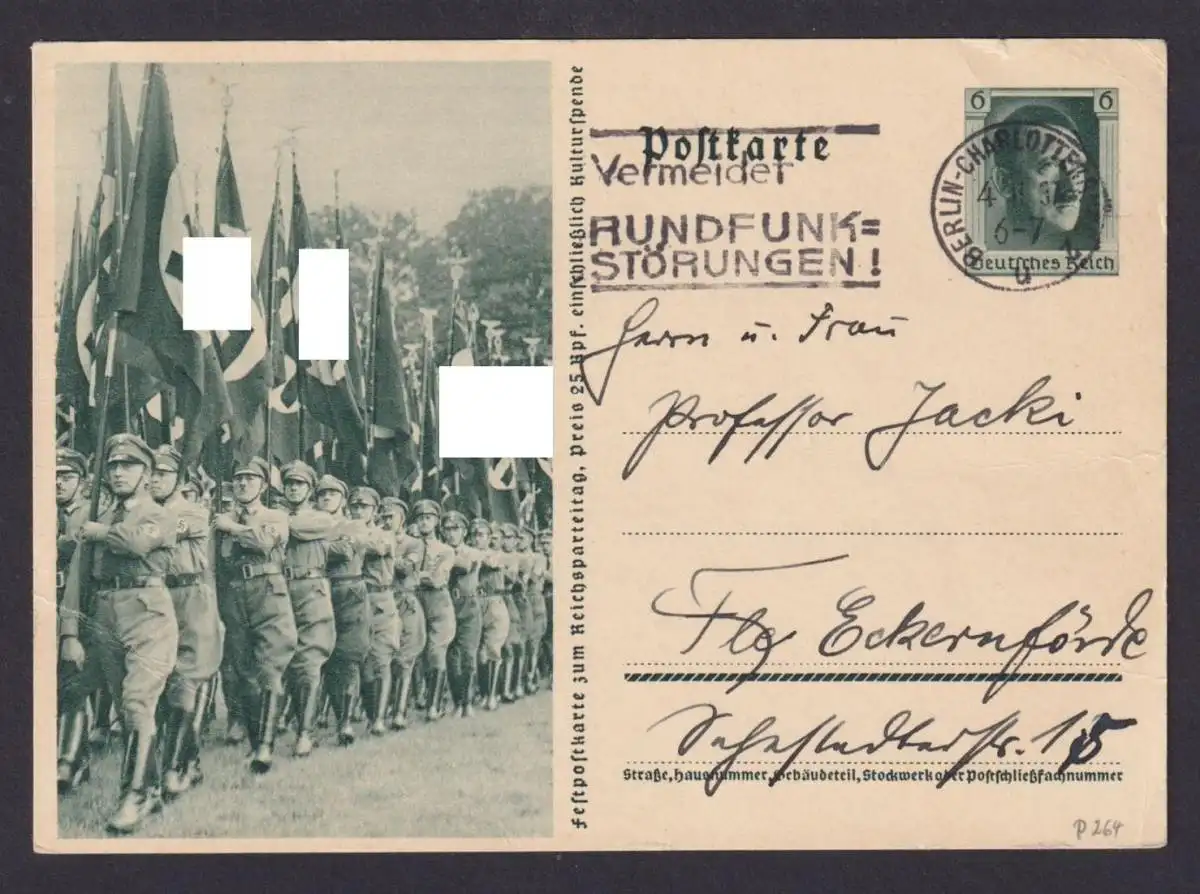 Festpostkarte zum Reichsparteitag, Preis 25 Rpf. einschließlich Kulturspende
Postkarte
Vermeidet
RUNDFUNK=
STÖRUNGEN!
6 6
BERLIN-CHARLOTTEN
6-7
u
Deutsches Reich
Herrn u. Frau
Professor Jacki
Eckernförde
Straße, Hausnummer, Gebäudeteil, Stockwerk oder Postschließfachnummer
P 264